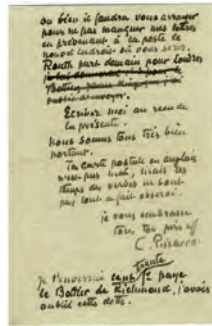 ou bien il faudra vous arranger
pour ne pas manquer mes lettres
en prévenant à la poste le
nouvel endroit où vous serez.
part demain pour Londres
Écrivez moi au reçu de
la présente.
Nous sommes tous très bien
portant.
Ta carte postale en anglais
n'est pas mal, mais les
temps des verbes ne sont
pas tout à fait observé.
je vous embrasse
ton père aff
C. Pissarro
trente
je t'enverrai cent f. paye
le Bottier de Richmond, j'avais
oublié cette dette.